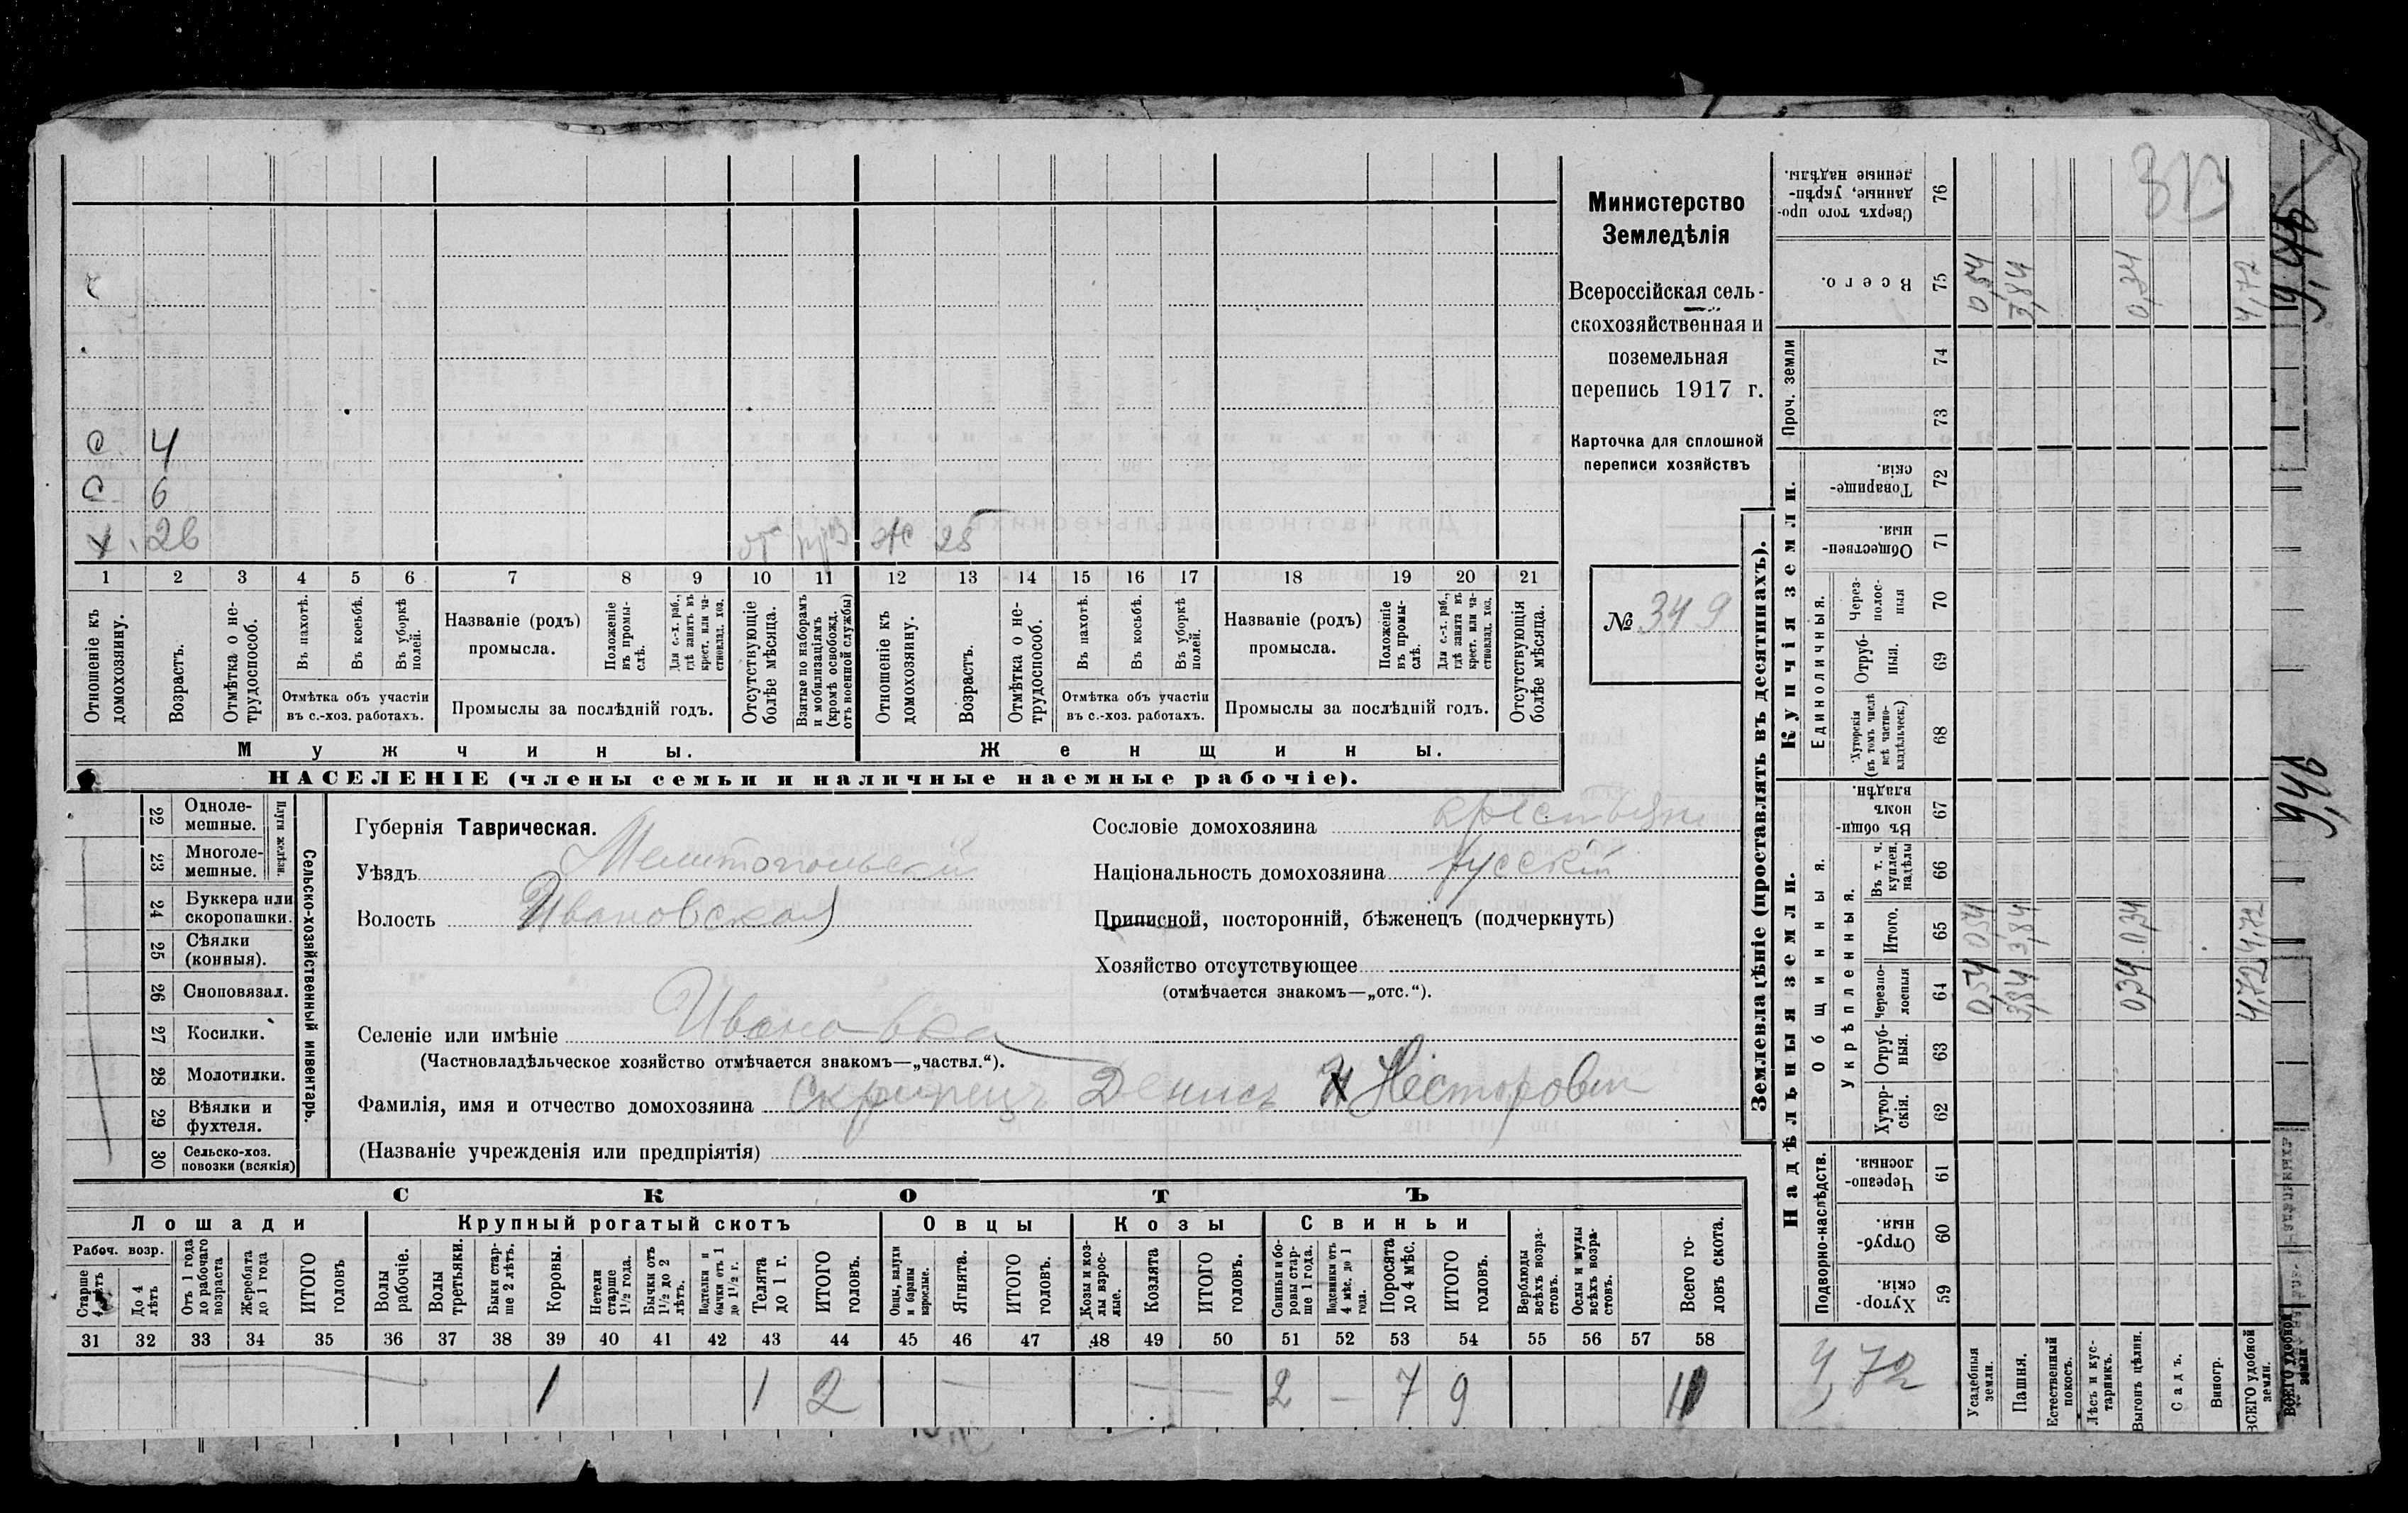 Министерство
Земледѣлія
Всероссійская сель-
скохозяйственная и
поземельная
перепись 1917 г.
Карточка для сплошной
переписи хозяйствъ
№ 349
С 4
С 6
х. 26 отс ж 25
1 2 3 4 5 6 7 8 9 10 11 12 13 14 15 16 17 18 19 20 21
Отношеніе къ домохозяину.
Возрастъ.
Отмѣтка о не-трудоспособ.
Въ пахотѣ.
Въ косьбѣ.
Въ уборкѣ полей.
Отмѣтка объ участіи въ с.-хоз. работахъ.
Названіе (родъ) промысла.
Положеніе въ промы-слѣ.
Для с.-х. раб., гдѣ занятъ въ крест. или ча-стновлад. хоз.
Промыслы за послѣдній годъ.
Отсутствующіе болѣе мѣсяца.
Взятые по наборамъ и мобилизаціямъ (кромѣ освобожд. отъ военной службы)
Отношеніе къ домохозяину.
Возрастъ.
Отмѣтка о не-трудоспособ.
Въ пахотѣ.
Въ косьбѣ.
Въ уборкѣ полей.
Отмѣтка объ участіи въ с.-хоз. работахъ.
Названіе (родъ) промысла.
Положеніе въ промы-слѣ.
Для с.-х. раб., гдѣ занята въ крест. или ча-стновлад. хоз.
Промыслы за послѣдній годъ.
Отсутствующія болѣе мѣсяца.
Мужчины.
Женщины.
НАСЕЛЕНІЕ (члены семьи и наличные наемные рабочіе).
22 Одноле-мешные.
23 Многоле-мешные.
Плуги желѣзн.
24 Буккера или скоропашки.
25 Сѣялки (конныя).
26 Сноповязал.
27 Косилки.
28 Молотилки.
29 Вѣялки и фухтеля.
30 Сельско-хоз. повозки (всякія)
Сельско-хозяйственный инвентарь.
Губернія Таврическая.
Уѣздъ Мелитопольскій
Волость Ивановская
Селеніе или имѣніе Ивановка
(Частновладѣльческое хозяйство отмѣчается знакомъ—„частвл.“).
Фамилія, имя и отчество домохозяина Скрипецъ Денисъ Несторович
(Названіе учрежденія или предпріятія)
Сословіе домохозяина крестьян
Національность домохозяина русскій
Приписной, посторонній, бѣженецъ (подчеркнуть)
Хозяйство отсутствующее
(отмѣчается знакомъ—„отс.“).
СКОТЪ
Лошади
Крупный рогатый скотъ
Овцы
Козы
Свиньи
Рабоч. возр.
Старше 4 лѣтъ
До 4 лѣтъ
Отъ 1 года до рабочаго возраста
Жеребята до 1 года
ИТОГО головъ
Волы рабочіе.
Волы третьяки.
Быки стар-ше 2 лѣтъ.
Коровы.
Нетели старше 1½ года.
Бычки отъ 1½ до 2 лѣтъ.
Подтелки и бычки отъ 1 до 1½ г.
Телята до 1 г.
ИТОГО головъ.
Овцы, валухи и бараны взрослые.
Ягнята.
ИТОГО головъ.
Козы и коз-лы взрос-лые.
Козлята
ИТОГО головъ.
Свиньи и бо-ровы стар-ше 1 года.
Подсвинки отъ 4 мѣс. до 1 года.
Поросята до 4 мѣс.
ИТОГО головъ.
Верблюды всѣхъ возра-стовъ.
Ослы и мулы всѣхъ возра-стовъ.
Всего го-ловъ скота.
31 32 33 34 35 36 37 38 39 40 41 42 43 44 45 46 47 48 49 50 51 52 53 54 55 56 57 58
1 1 2 — — 2 — 7 9 11
Землевладѣніе (проставлять въ десятинахъ).
Надѣльныя земли.
Купчія земли.
Проч. земли
Подворно-наслѣдств.
Общинныя.
Укрѣпленныя.
Единоличныя.
Хутор-скія. 59
Отруб-ныя. 60
Черезпо-лосныя. 61
Хутор-скія. 62
Отруб-ныя. 63
черезпо-лосныя 64
Итого. 65
Въ т. ч. куплен. надѣлы 66
Въ общин-номъ владѣн. 67
Хуторскія (въ томъ числѣ всѣ частно-владѣльческ.) 68
Отруб-ныя. 69
Через-полос-ныя 70
Обществен-ныя. 71
Товарище-скія. 72
73
74
Всего. 75
Сверхъ того про-данные, укрѣп-ленные надѣлы. 76
4,72
Усадебныя земли. 0,54 0,54 0,54
Пашня. 3,84 3,84 3,84
Естественный покосъ.
Лѣсъ и кус-тарникъ.
Выгонъ цѣлин. 0,34 0,34 0,34
Садъ.
Виногр.
ВСЕГО удобной земли. 4,72 4,72 4,72
313
9,46
ВСЕГО удобной земли